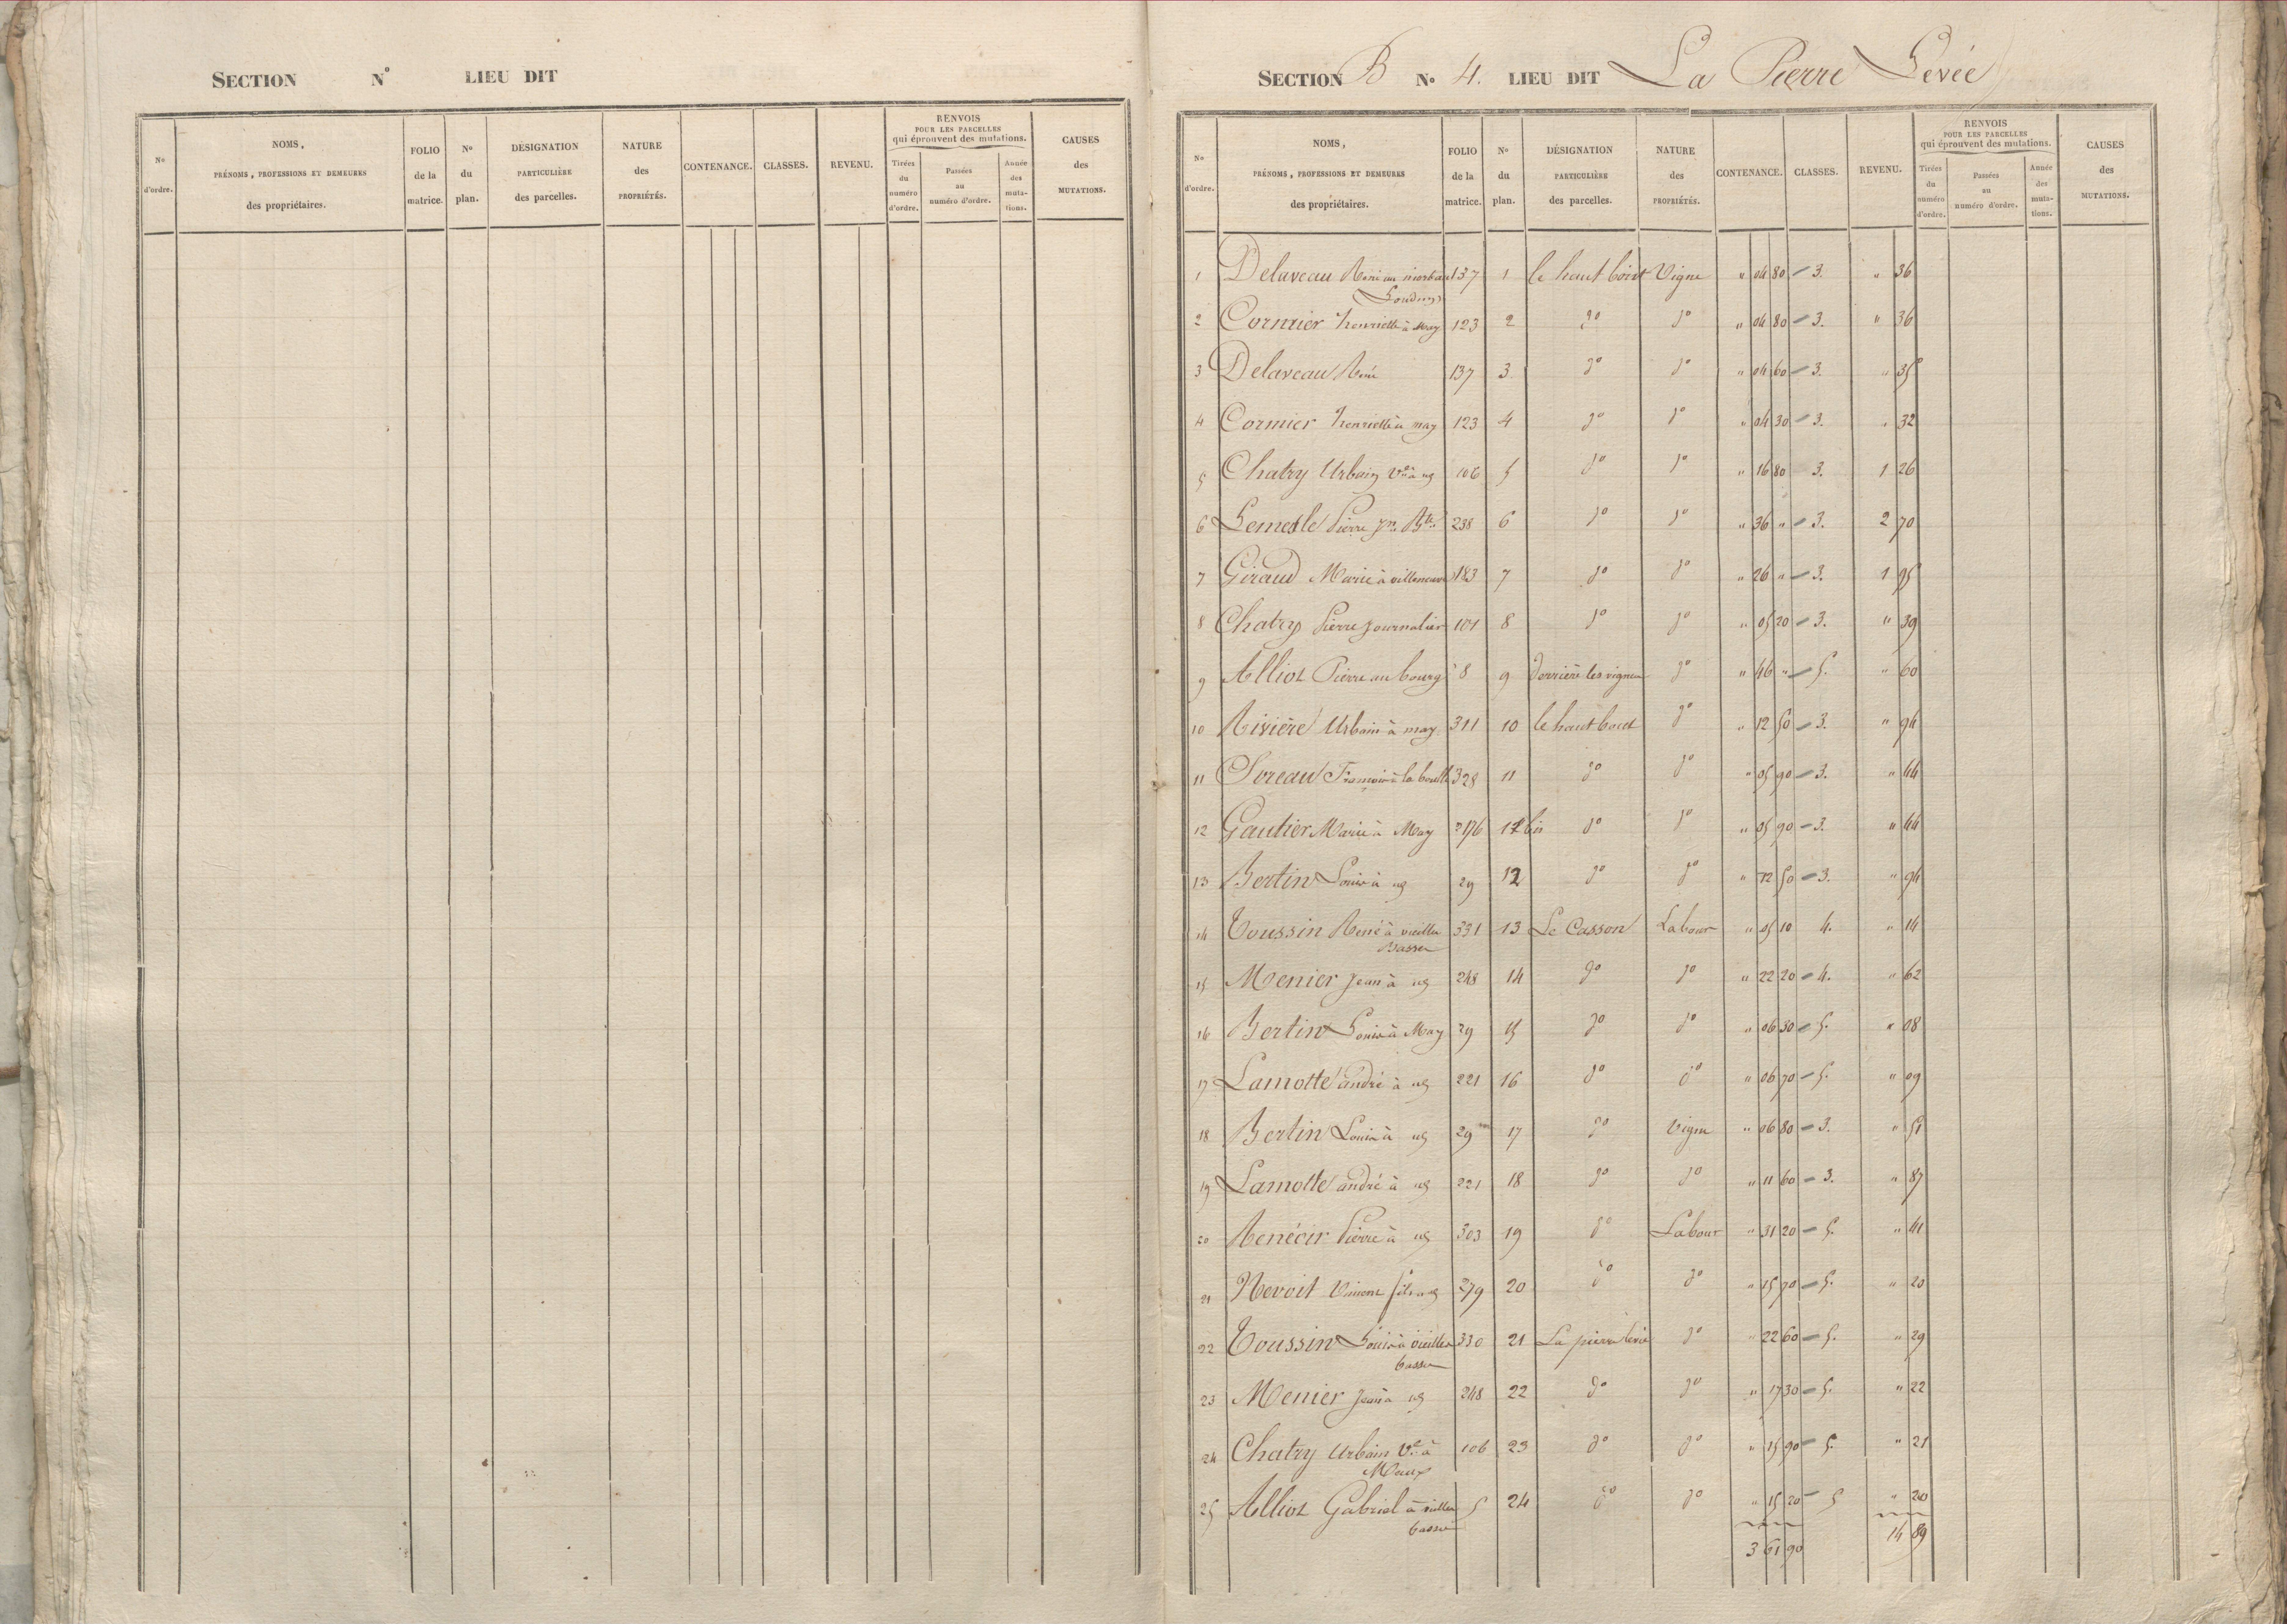 SECTION N° LIEU DIT
N° d'ordre. NOMS, PRÉNOMS, PROFESSIONS ET DEMEURES des propriétaires. FOLIO de la matrice. N° du plan. DÉSIGNATION PARTICULIÈRE des parcelles. NATURE des PROPRIÉTÉS. CONTENANCE. CLASSES. REVENU. RENVOIS POUR LES PARCELLES qui éprouvent des mutations. Tirées du numéro d'ordre. Passées au numéro d'ordre. Année des muta-tions. CAUSES des MUTATIONS.
SECTION B N° 4. LIEU DIT La Pierre Levée
N° d'ordre. NOMS, PRÉNOMS, PROFESSIONS ET DEMEURES des propriétaires. FOLIO de la matrice. N° du plan. DÉSIGNATION PARTICULIÈRE des parcelles. NATURE des PROPRIÉTÉS. CONTENANCE. CLASSES. REVENU. RENVOIS POUR LES PARCELLES qui éprouvent des mutations. Tirées du numéro d'ordre. Passées au numéro d'ordre. Année des muta-tions. CAUSES des MUTATIONS.
1 Delaveau René 137 1 le haut bout Vigne " 04 80 3. " 36
2 Cormier henriette à May 123 2 do do " 04 80 3. " 36
3 Delaveau René 137 3 do do " 04 60 3. " 35
4 Cormier henriette à may 123 4 do do " 04 30 3. " 32
5 Chatry Urbain Ve à 106 5 do do " 16 80 3. 1 26
6 Lemesle Pierre Jn Bte 238 6 do do " 36 " 3. 2 70
7 Giraud Marie à villeneuve 183 7 do do " 26 " 3. 1 95
8 Chatry Pierre journalier 101 8 do do " 05 20 3. " 39
9 Alliot Pierre au bourg 8 9 derrière les vignes do " 46 " 5. " 60
10 Rivière Urbain à may 311 10 le haut bout do " 12 50 3. " 94
11 Soreau François à la 328 11 do do " 05 90 3. " 44
12 Gautier Marie à May 176 12 bis do do " 05 90 3. " 44
13 Bertin Louis à 29 12 do do " 12 50 3. " 94
14 Toussin René à vieilles 331 13 Le Casson Labour " 05 10 4. " 14
basses
15 Menier Jean à 248 14 do do " 22 20 4. " 62
16 Bertin Louis à May 29 15 do do " 06 30 5. " 08
17 Lamotte andré à 221 16 do do " 06 70 5. " 09
18 Bertin Louis à 29 17 do Vigne " 06 80 3. " 51
19 Lamotte andré à 221 18 do do " 11 60 3. " 87
20 Pierre à 303 19 do Labour " 31 20 5. " 41
21 Nevoit Vincent fils 279 20 do do " 15 70 5. " 20
22 Toussin Louis à vieilles 330 21 La pierre levée do " 22 60 5. " 29
basses
23 Menier Jean à 248 22 do do " 17 30 5. " 22
24 Chatry Urbain Ve à 106 23 do do " 15 90 5. " 21
25 Alliot Gabriel à vielles 5 24 do do " 15 20 5 " 20
basses
3 61 90 14 89